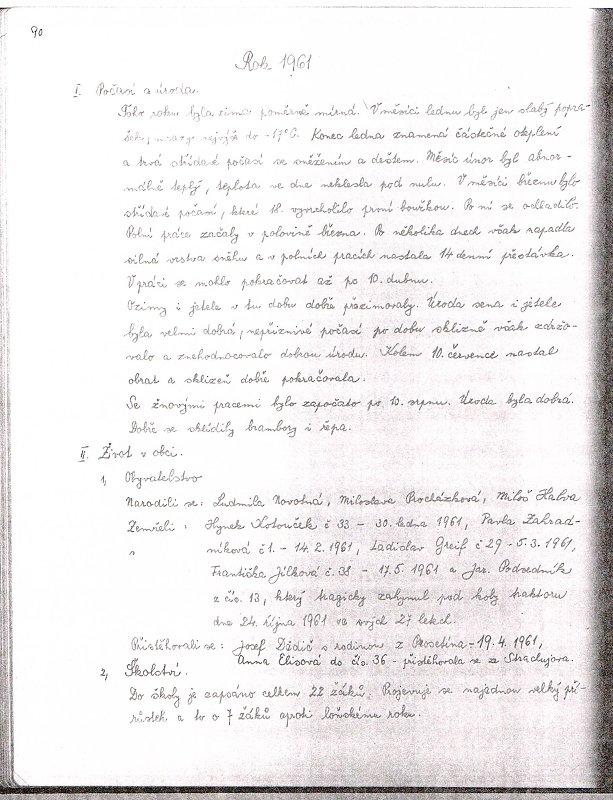 90
Rok 1961
I. Počasí a úroda.
Toho roku byla zima poměrně mírná. V měsíci lednu byl jen slabý popra-
šek, mrazy nejvýše do -17°C. Konec ledna znamená částečné oteplení
a trvá střídavé počasí se sněžením a deštěm. Měsíc únor byl abnor-
málně teplý, teplota ve dne neklesla pod nulu. V měsíci březnu bylo
střídavé počasí, které 18. vyvrcholilo první bouřkou. Po ní se ochladilo.
Polní práce začaly v polovině března. Po několika dnech však napadla
silná vrstva sněhu a v polních pracích nastala 14 denní přestávka.
V práci se mohlo pokračovat až po 10. dubnu.
Ozimy i jetele v tu dobu dobře přezimovaly. Úroda sena i jetele
byla velmi dobrá, nepříznivé počasí po dobu sklizně však zdržo-
valo a znehodnocovalo dobrou úrodu. Kolem 10. července nastal
obrat a sklizeň dobře pokračovala.
Se žnovými pracemi bylo započato po 10. srpnu. Úroda byla dobrá.
Dobře se sklidily brambory i řepa.
II. Život v obci.
1, Obyvatelstvo
Narodili se: Ludmila Novotná, Miloslava Procházková, Miloš Halva
Zemřeli: Hynek Kotouček č 33 - 30. ledna 1961, Pavla Zahrad-
níková č 1. - 14. 2. 1961, Ladislav Greif č 29 - 5. 3. 1961,
Františka Jílková č. 38 - 17. 5 1961 a Jar. Podsedník
z čís. 13, který tragicky zahynul pod koly traktoru
dne 24. října 1961 ve svých 27 letech.
Přistěhovali se: Josef Dědič s rodinou z Prosetína - 19. 4. 1961,
Anna Elisová do čís. 36 - přistěhovala se ze Strachujova.
2, Školství.
Do školy je zapsáno celkem 22 žáků. Projevuje se najednou velký pří-
růstek a to o 7 žáků oproti loňskému roku.